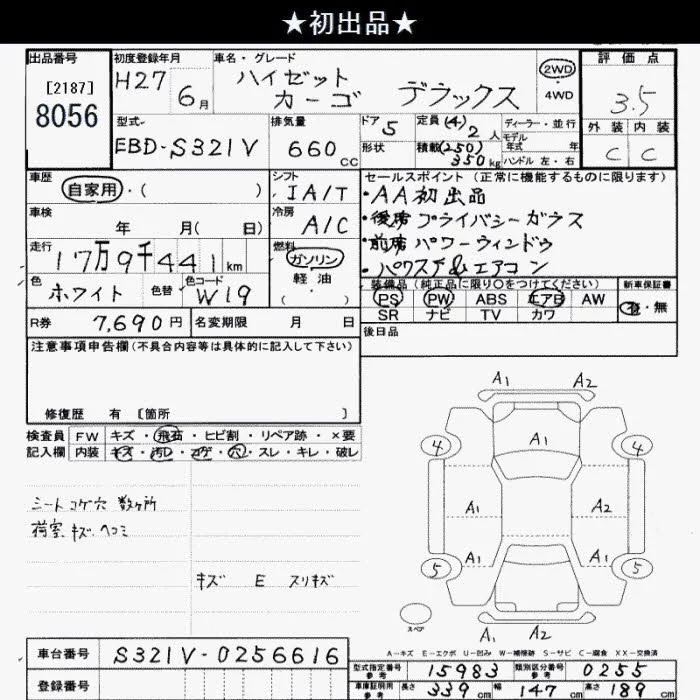 ★初出品★
出品番号
[2187]
8056
初度登録年月
H27 6月
車名・グレード
ハイゼット
カーゴ デラックス
2WD
・
4WD
評価点
3.5
外装 内装
C C
型式
EBD-S321V
排気量
660cc
ドア 5
形状
定員 (4) 2人
積載 (250) 350kg
ディーラー・並行
モデル
年式 年
ハンドル 左・右
車歴
自家用・( )
シフト
IA/T
車検
年 月( 日)
冷房
A/C
走行
17万9千441km
燃料
ガソリン
軽油
( )
色
ホワイト
色替
色コード
W19
R券 7,690円
名変期限 月 日
セールスポイント(正常に機能するものに限ります)
・AA初出品
・後席プライバシーガラス
・前席パワーウィンドゥ
・パワステ&エアコン
装備品(純正品に限り○をつけてください)
PS PW ABS エアB AW
SR ナビ TV カワ
新車保証書
有・無
後日品
注意事項申告欄(不具合内容等は具体的に記入して下さい)
修復歴 有 [箇所 ]
検査員
記入欄
FW キズ・飛石・ヒビ割・リペア跡・×要
内装 キズ・汚レ・コゲ・穴・スレ・キレ・破レ
シートコゲ穴 数ヶ所
荷室.キズ.ヘコミ
キズ E スリキズ
A1 A2
4 A1 4
A1 A2
A1 A1
5 5
スペア
A1 A2
A-キズ E-エクボ U-凹み W-補修跡 S-サビ C-腐食 XX-交換済
車台番号 S321V-0256616
登録番号
型式指定番号
参考
15983
類別区分番号
参考
0255
車庫証明用
参考
長さ 339cm 幅 147cm 高さ 189cm